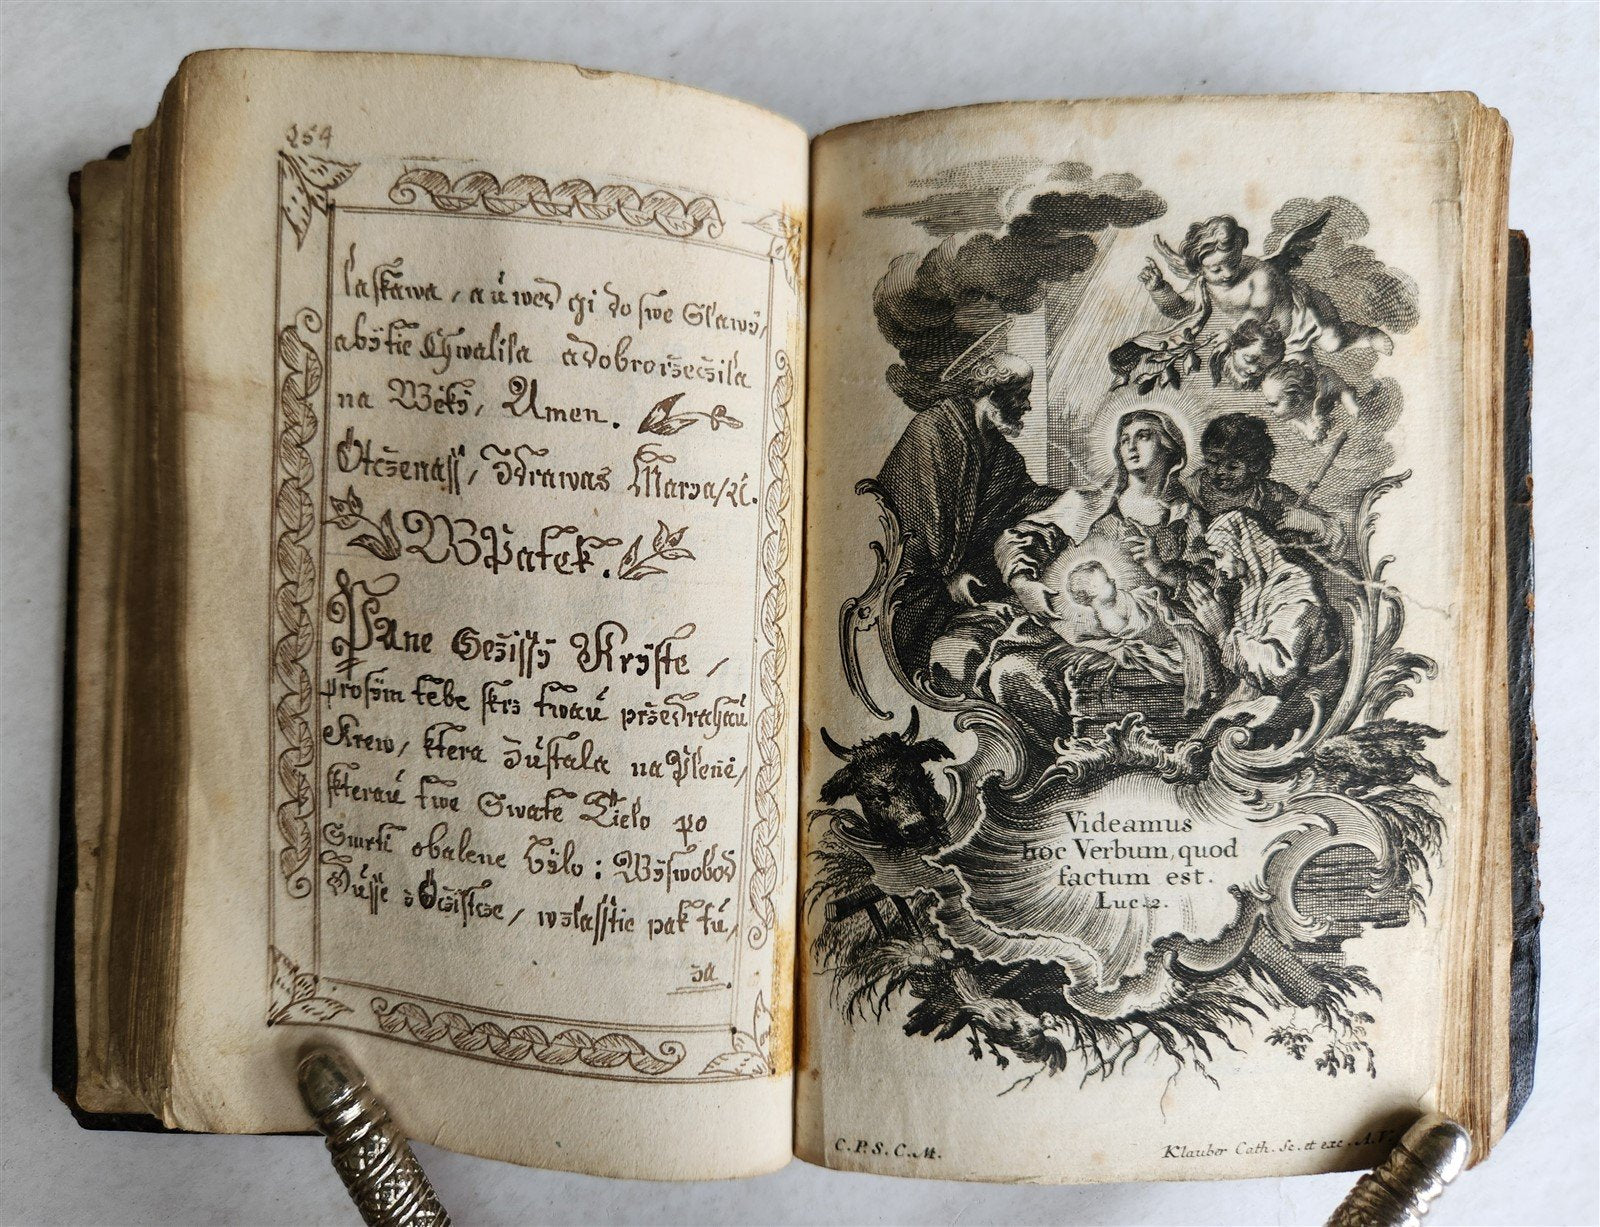 254
laskawa, a uweď gi do swe Slawy,
aby tie Chwalila a dobroržečžila
na Wěky, Amen.
Otčženass, Zdrawas Marya, ꝛc.
W Patek.
Pane Gežissy Kryste,
prosym tebe skrz twau pržedrahau
Krew, ktera zustala na Pleně,
kterau twe Swate Tielo po
Smrti obalene bylo: Wyswoboď
Dusse z Očžistcze, wzlasstie pak tu,
za.
Videamus
hoc Verbum, quod
factum est.
Luc. 2.
C. P. S. C. M.
Klauber Cath. Sc. et exc. A.V.